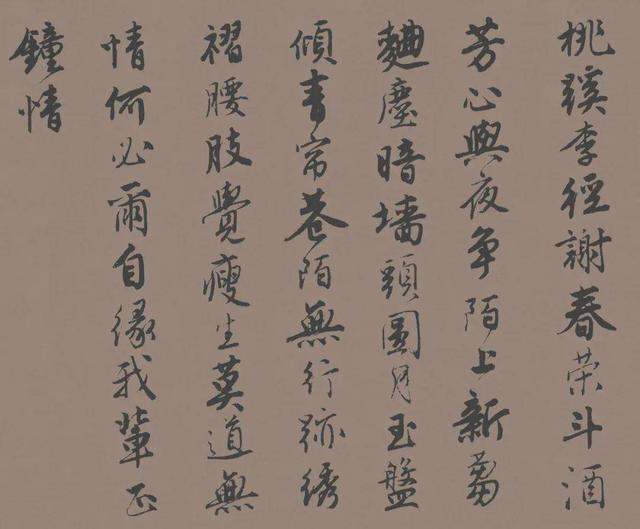 桃蹊李徑謝春榮斗酒
芳心與夜爭陌上新蒭
麯塵暗墻頭圓月玉盤
傾青帘巷陌無行跡綉
褶腰肢覺瘦生莫道無
情何必爾自緣我輩正
鐘情